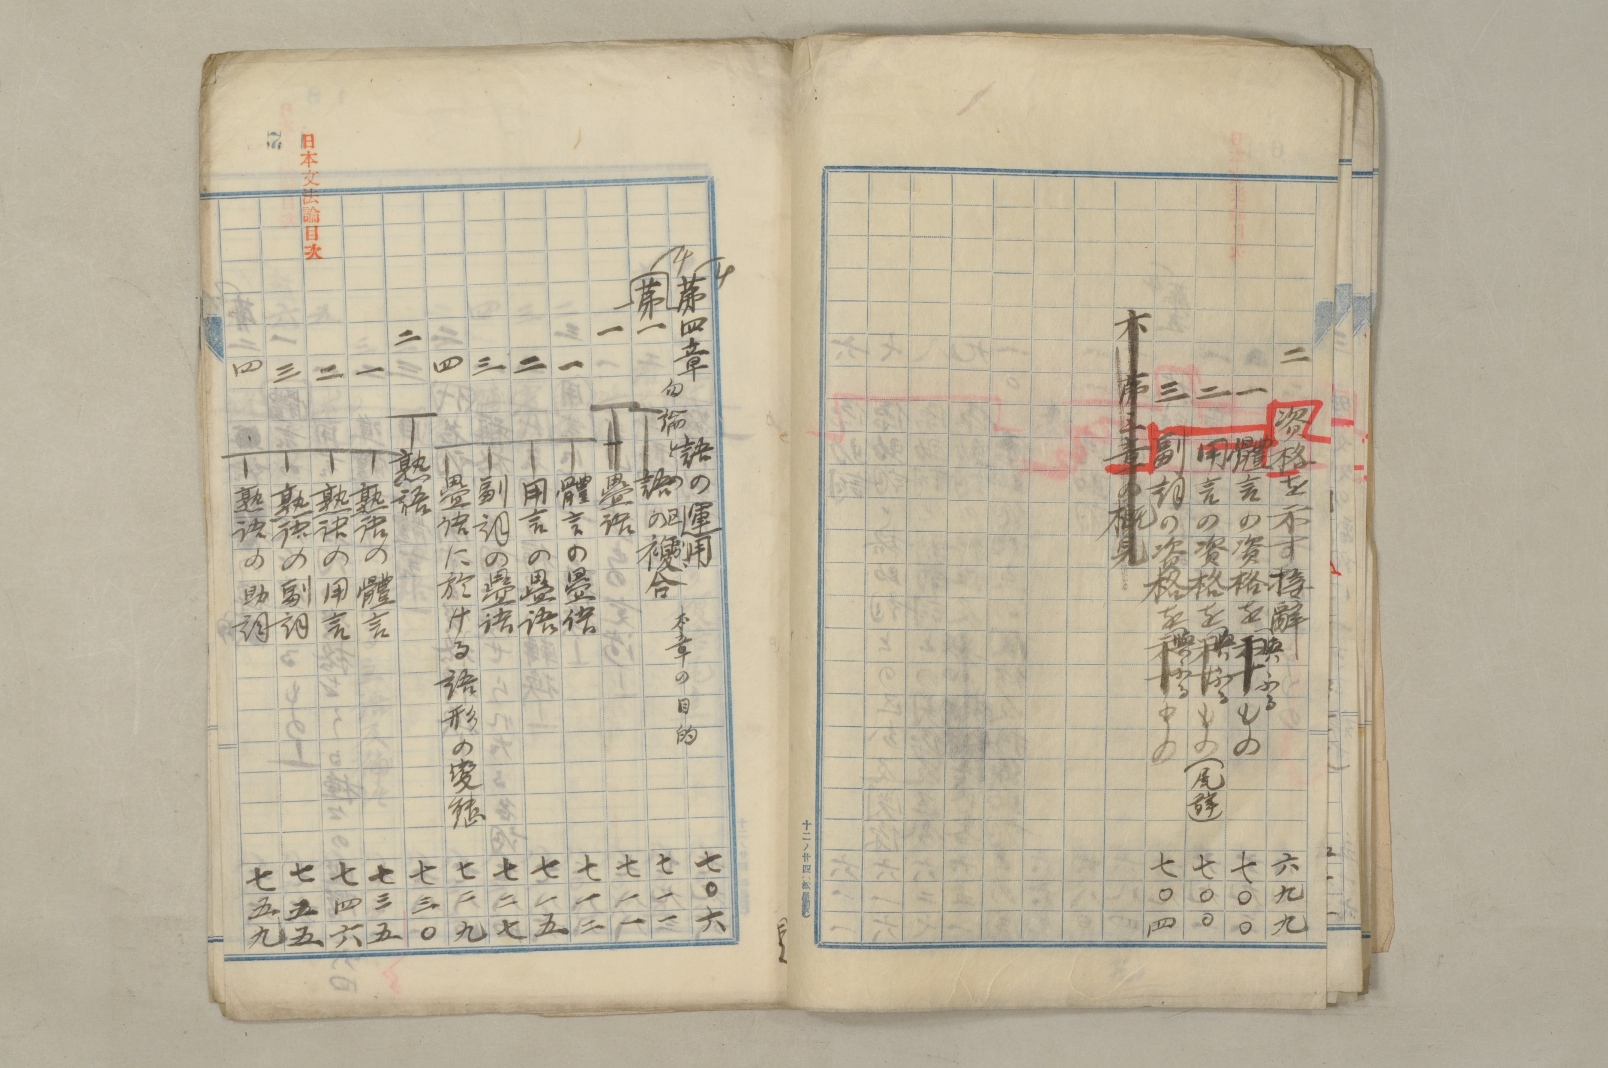 二 資格を示す接辭 六九九
一 體言の資格を與ふるもの 七〇〇
二 用言の資格を與ふるもの(尾辭) 七〇〇
三 副詞の資格を與ふるもの 七〇四
第四章 語の運用 七〇六
句論との區別 本章の目的
第一 語の複合 七一一
一 疊語 七一一
一 體言の疊語 七一二
二 用言の疊語 七一五
三 副詞の疊語 七二七
四 疊語に於ける語形の變態 七二九
二 熟語 七三〇
一 熟語の體言 七三五
二 熟語の用言 七四六
三 熟語の副詞 七五五
四 熟語の助詞 七五九
日本文法論目次